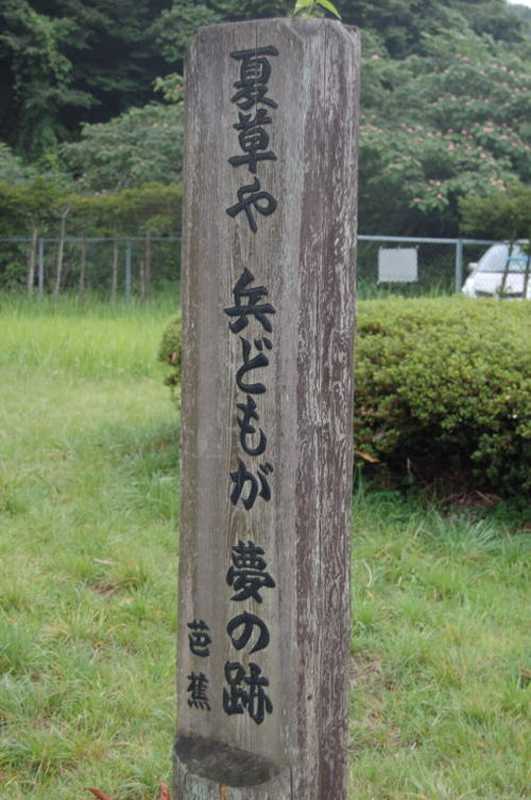 夏草や 兵どもが 夢の跡
芭蕉